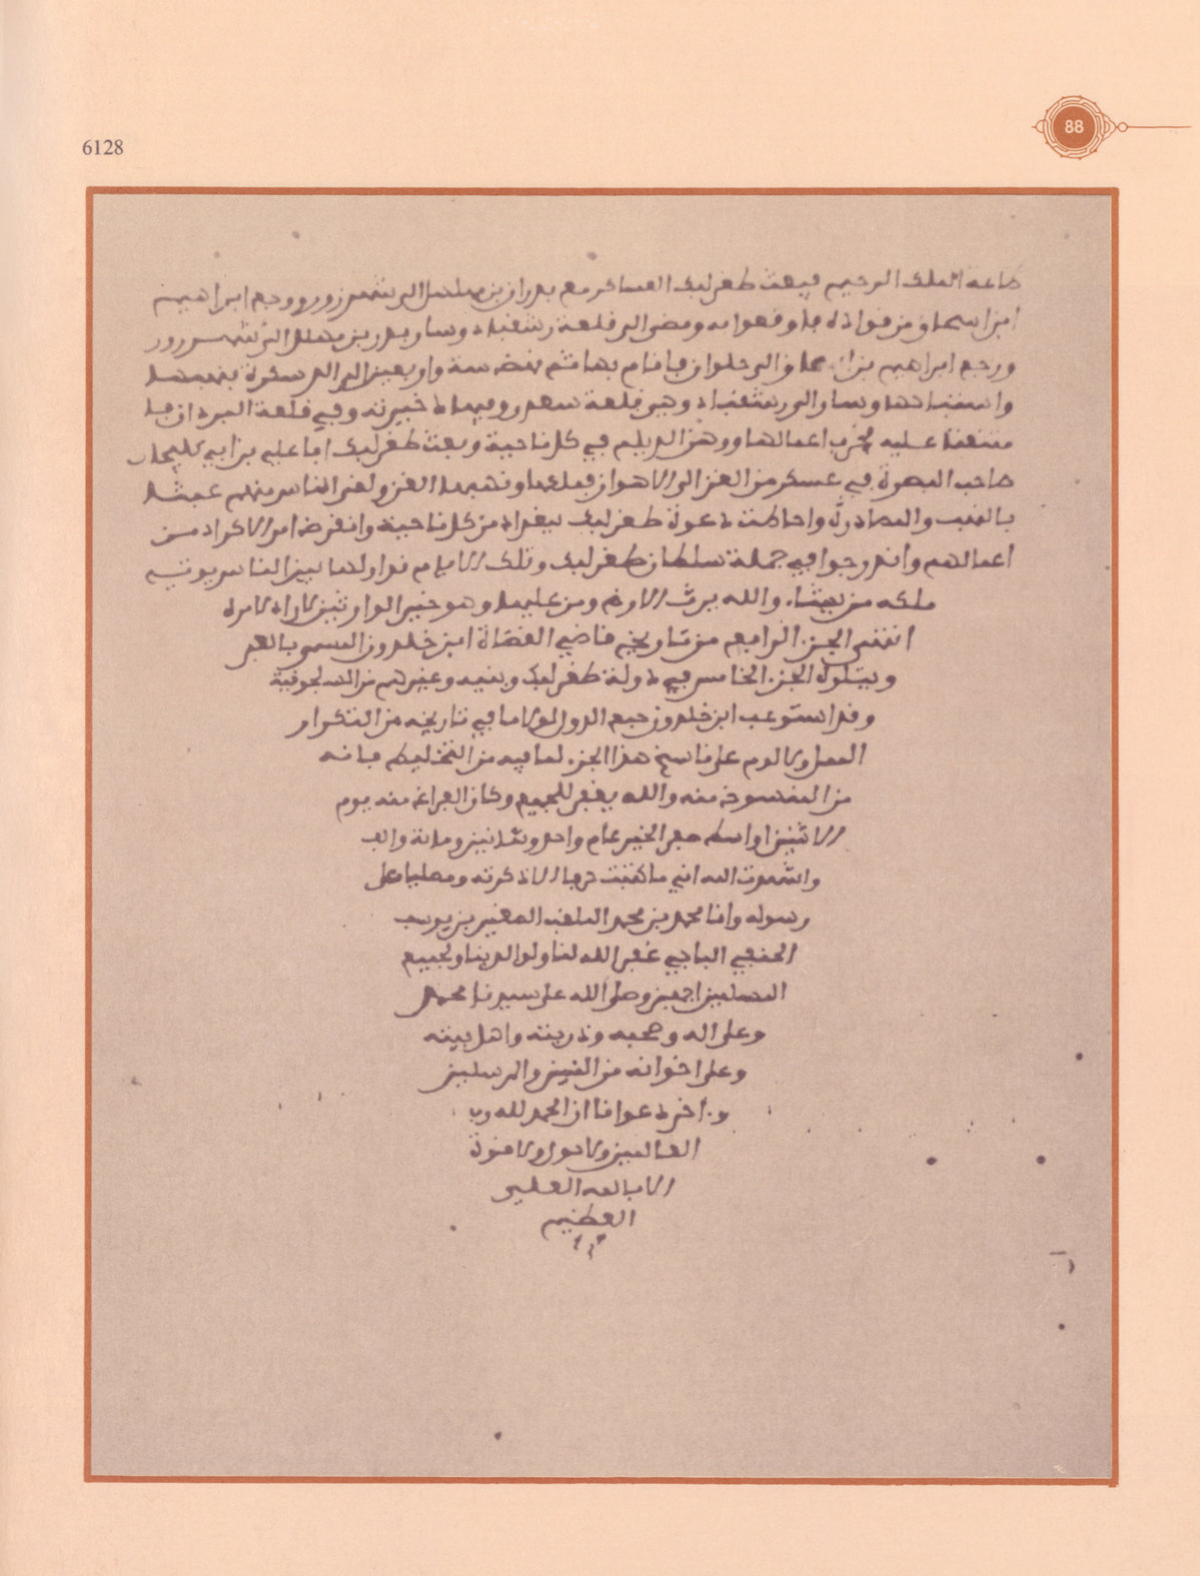 88
6128
طاعة الملك الرحيم فبعث طغرلبك العساكر مع بدران بن مهلهل الى شهرزور ورجع ابراهيم
ابن اسحاق من قواده فاوقعوا به ومضى الى قلعة رشقباد وسار بدر بن مهلهل الى شهرزور
ورجع ابراهيم بن اسحاق الى حلوان فاقام بها ثم نهض سنة واربعين الى الدسكرة فنهبها
واستباحها وسار الى رشقباد وهي قلعة سعدى وفيها ذخيرته وفي قلعة البردان فا
متنعتا عليه فخرب اعمالها ووهن الديلم في كل ناحية وبعث طغرلبك ابا علي بن ابي كاليجار
صاحب البصرة في عسكر من الغز الى الاهواز فملكها ونهبها الغز ولقي الناس منهم عيثا
بالنهب والمصادرة واحاطت دعوة طغرلبك ببغداد من كل ناحية وانقرض امر الاكراد من
اعمالهم واندرجوا في جملة سلطان طغرلبك وتلك الايام نداولها بين الناس يوتي
ملكه من يشاء والله يرث الارض ومن عليها وهو خير الوارثين لا راد لامره
انتهى الجزء الرابع من تاريخ قاضي القضاة ابن خلدون المسمى بالعبر
ويتلوه الجزء الخامس في دولة طغرلبك وبنيه وغيرهم من السلجوقية
وقد استوعب ابن خلدون جميع الدول لولا ما في تاريخه من التكرار
الممل ولا لوم على ناسخ هذا الجزء لما فيه من التخليط فانه
من المنسوخة منه والله يغفر للجميع وكان الفراغ منه يوم
الاثنين اواسط صفر الخير عام واحد وثمانين ومائة والف
واشهدت الله اني ما كتبت حرفا الا ذكرته ومصليا على
رسوله وانا محمد بن محمد الملقب الصغير بن يوسف
الحنفي الباجي غفر الله لنا ولوالدينا ولجميع
المسلمين اجمعين وصلى الله على سيدنا محمد
وعلى اله وصحبه وذريته واهل بيته
وعلى اخوانه من النبيين والمرسلين
وءاخر دعوانا ان الحمد لله رب
العالمين ولا حول ولا قوة
الا بالله العلي
العظيم